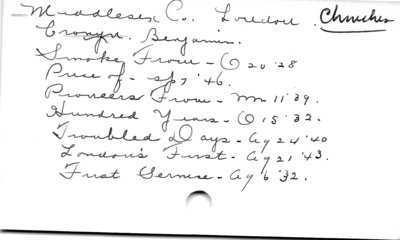 Middlesex Co. London. Churches
Cronyn. Benjamin.
Smoke From - O 20 '28
Price of - Ap 5 '46.
Pioneers From - Mr 11 '39.
Hundred Years - O 15 '32.
Troubled Days - Ag 24 '40
London's First - Ag 21 '43.
First Service - Ag 6 '32.